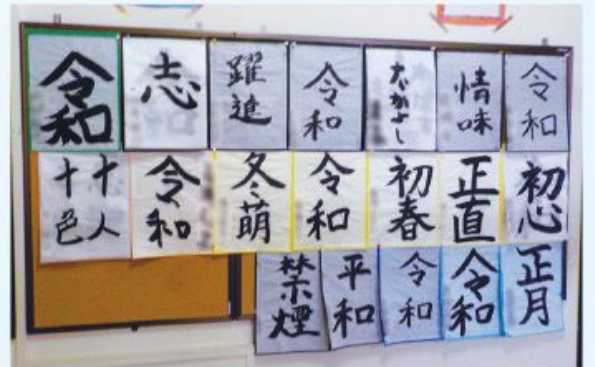 令和
志
躍進
令和
なかよし
情味
令和
十人十色
令和
冬萌
令和
初春
正直
初心
禁煙
平和
令和
令和
正月